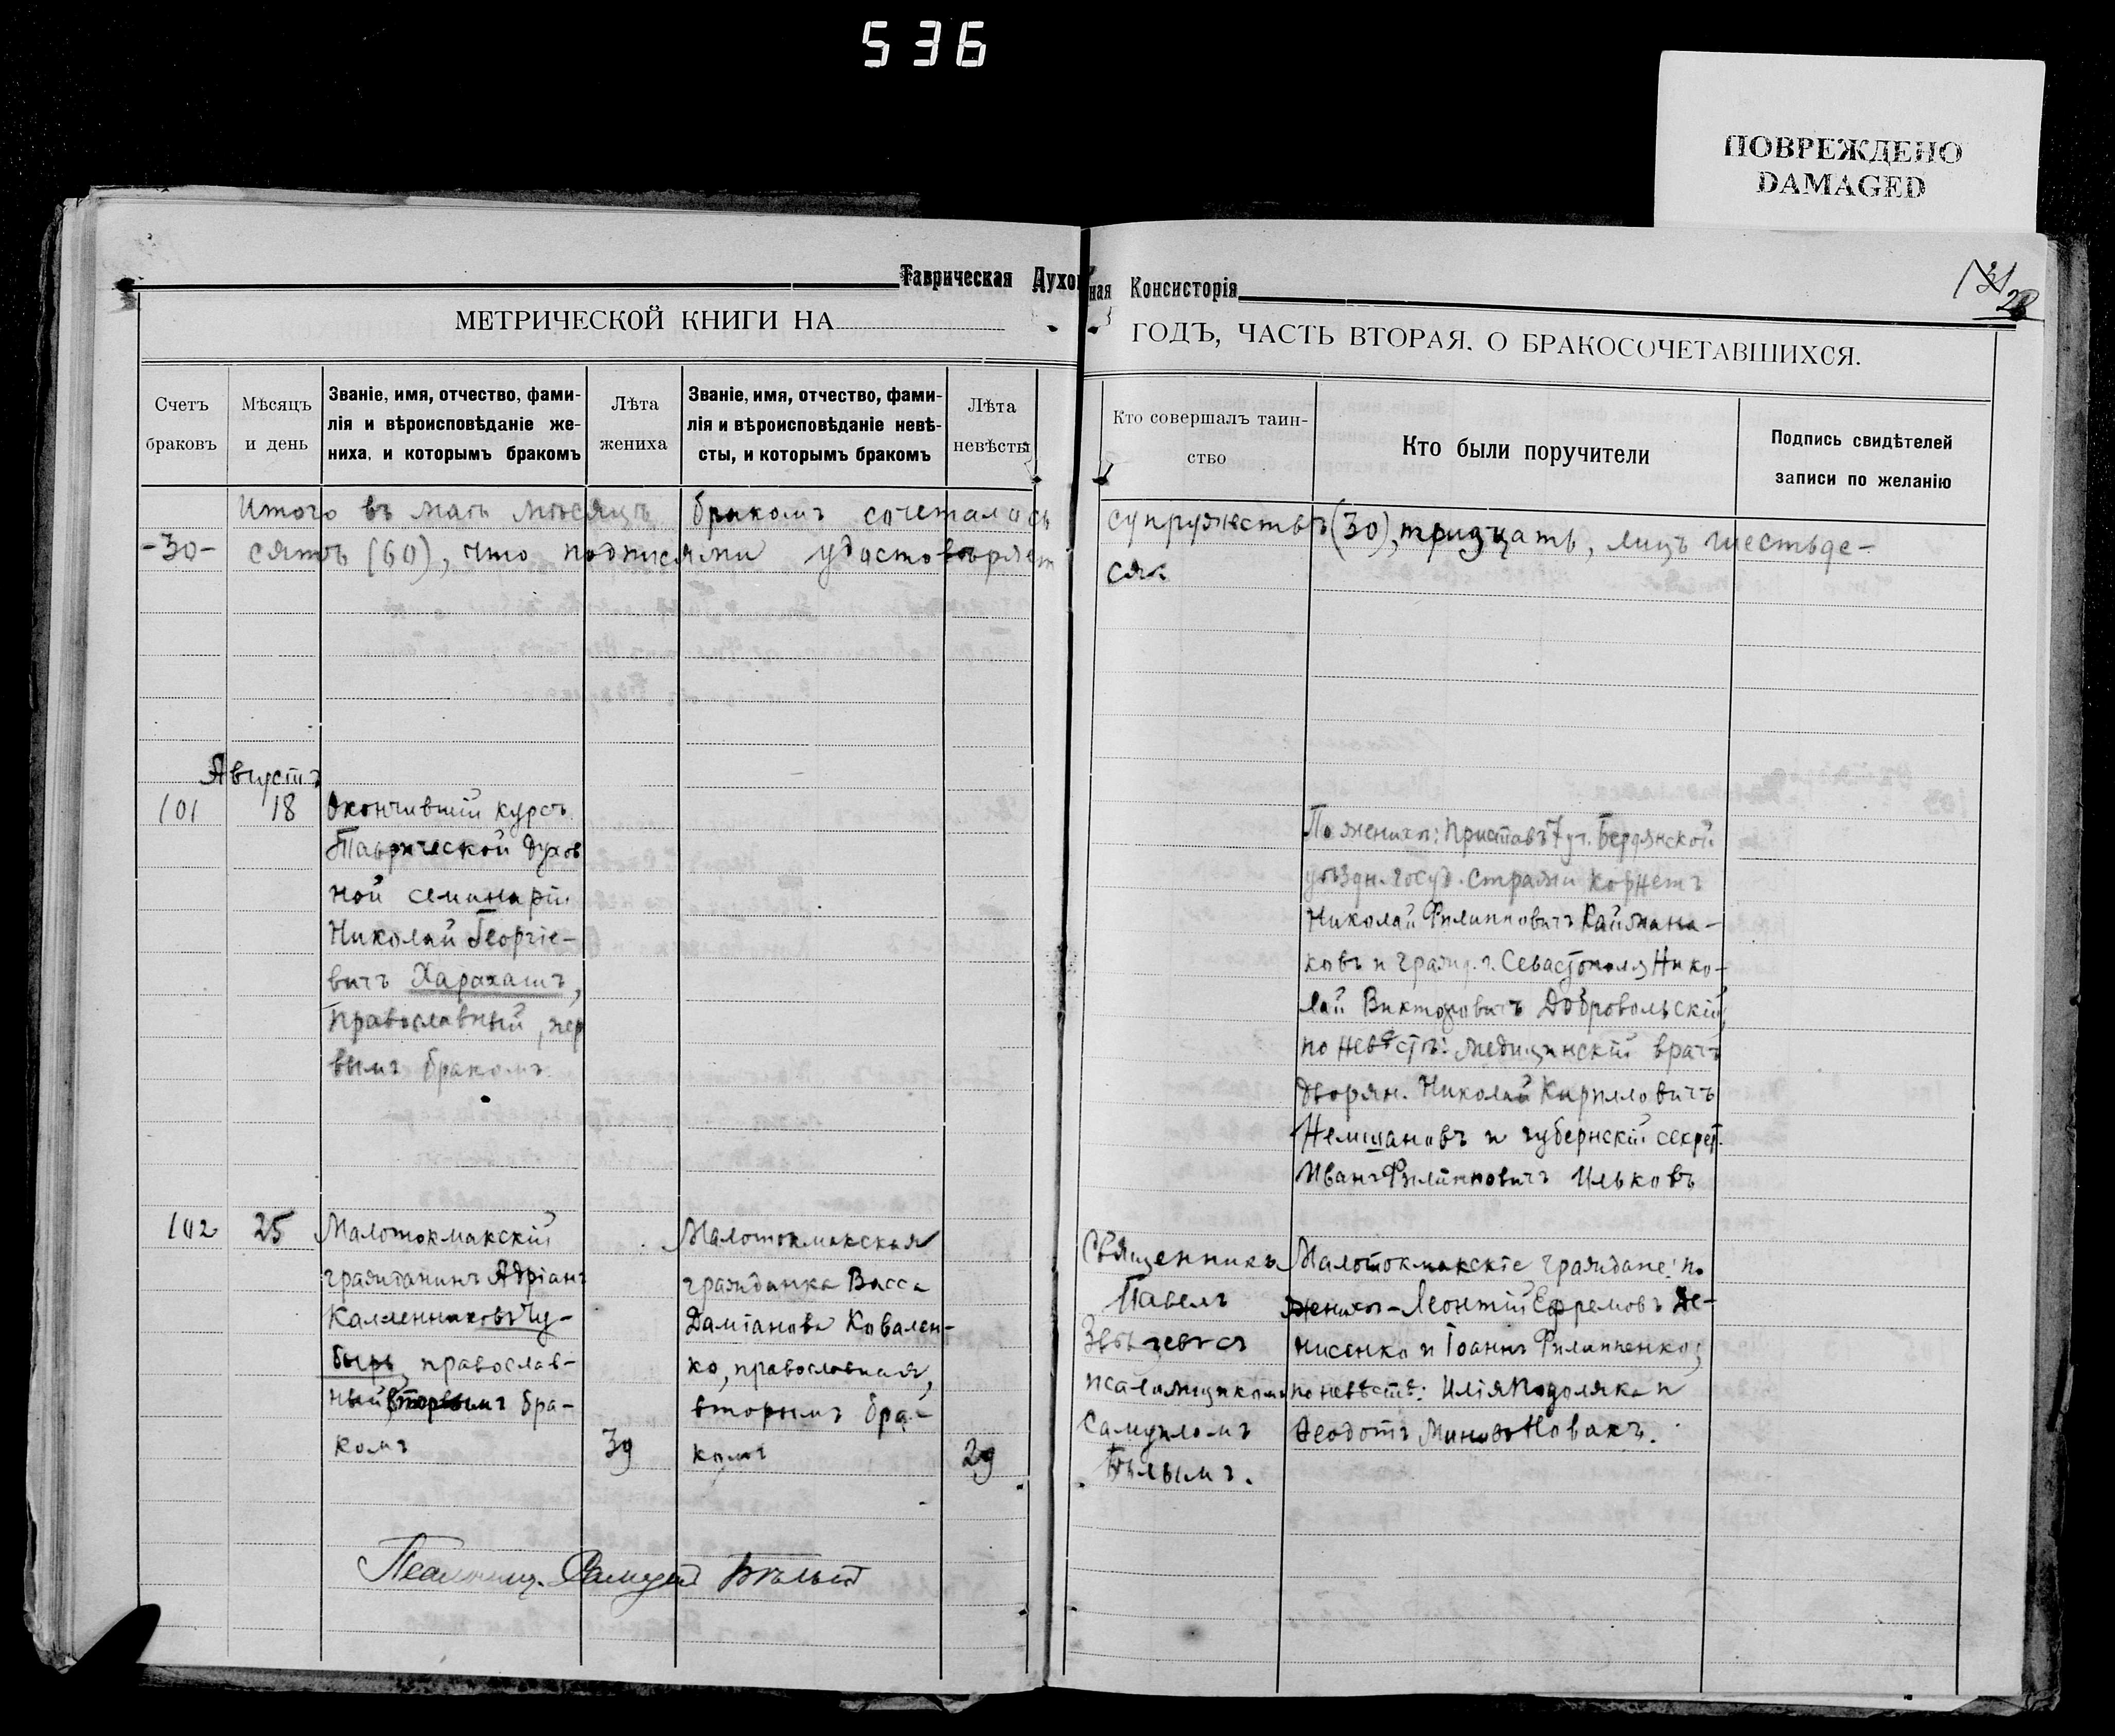 536
ПОВРЕЖДЕНО
DAMAGED
Таврическая Духовная Консисторія
28
МЕТРИЧЕСКОЙ КНИГИ НА ГОДЪ, ЧАСТЬ ВТОРАЯ, О БРАКОСОЧЕТАВШИХСЯ.
Счетъ браковъ
Мѣсяцъ и день
Званіе, имя, отчество, фами-
лія и вѣроисповѣданіе же-
ниха, и которымъ бракомъ
Лѣта жениха
Званіе, имя, отчество, фами-
лія и вѣроисповѣданіе невѣ-
сты, и которымъ бракомъ
Лѣта невѣсты
Кто совершалъ таин-
ство
Кто были поручители
Подпись свидѣтелей
записи по желанію
Итого въ маѣ мѣсяцѣ бракомъ сочеталось супружествъ (30), тридцать, лицъ шестьде-
-30- сятъ (60), что подписями удостовѣряет
ся.
Августъ
101
18
Окончившій курсъ
Таврической Духов
ной семинаріи
Николай Георгіе-
вичъ Харахашъ,
Православный, пер
вымъ бракомъ.
По женихѣ: Приставъ 7 уч. Бердянской
уѣздн. Госуд. Стражи Корнетъ
Николай Филипповичъ Каймана-
ковъ и гражд. г. Севастополя Нико-
лай Викторовичъ Добровольскій,
по невѣстѣ: медицинскій врачъ
дворян. Николай Кирилловичъ
Немшановъ и губернскій секрет.
Иванъ Филипповичъ Ильковъ
102
25
Малотокмакскій
гражданинъ Адріанъ
Каленниковъ Чу-
бырь, православ-
ный, вторымъ бра-
комъ
39
Малотокмакская
гражданка Васса
Даміанова Ковален-
ко, православная,
вторымъ бра-
комъ
29
Священникъ
Павелъ
псаломщикомъ
Самуиломъ
Бѣлымъ.
Малотокмакскіе граждане: по
женихѣ - Леонтій Ефремовъ Де-
нисенко и Іоаннъ Филипенко;
по невѣстѣ: Илія Подоляка и
Ѳеодотъ Миновъ Новакъ.
Псаломщ. Самуилъ Бѣлый